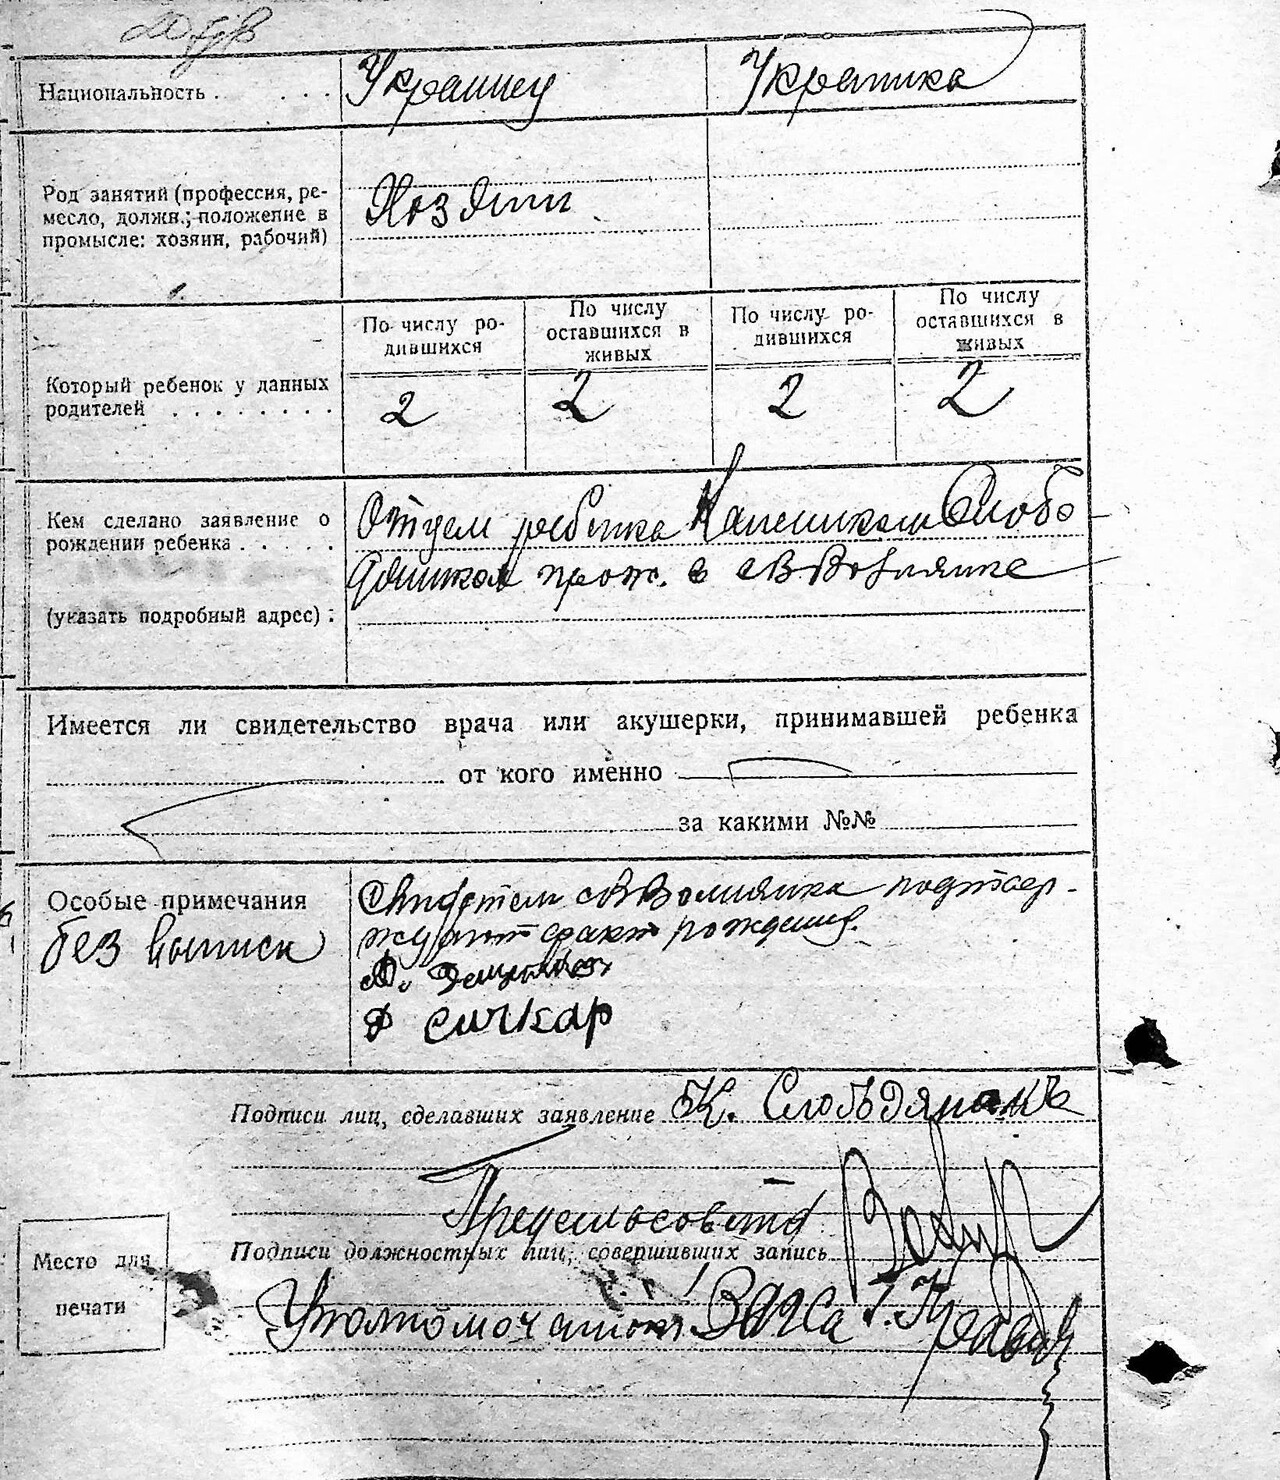 Национальность . . . . . Украинец Украинка
Род занятий (профессия, ре-
месло, должн.; положение в
промысле: хозяин, рабочий)
Хозяин
По числу ро-
дившихся
По числу
оставшихся в
живых
По числу ро-
дившихся
По числу
оставшихся в
живых
Который ребенок у данных
родителей . . . . . . . .
2 2 2 2
Кем сделано заявление о
рождении ребенка . . . . .
(указать подробный адрес) :
Отцем ребенка Слобо
дяником прож. в
Имеется ли свидетельство врача или акушерки, принимавшей ребенка
от кого именно
за какими №№
Особые примечания
без выписи
подтвер-
ждают факт рождения.
Сичкар
Подписи лиц, сделавших заявление К.
Предсельсовета
Подписи должностных лиц, совершивших запись
Место для
печати
Уполномоченный Загса